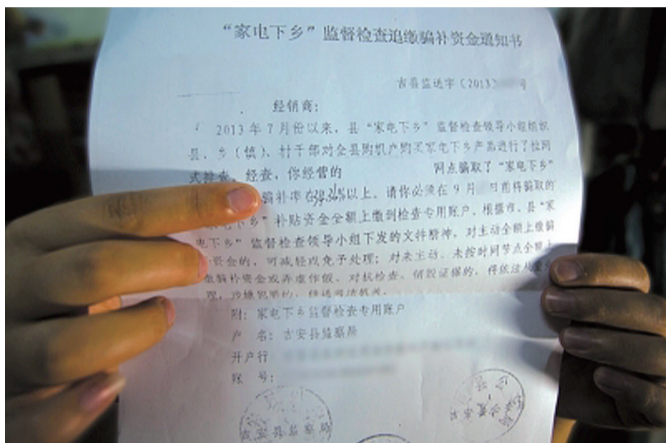 “家电下乡”监督检查追缴骗补资金通知书
吉县监送字(2013) 号
经销商:
2013年7月份以来,县“家电下乡”监督检查领导小组组织
县、乡(镇)、村干部对全县购机户购买家电下乡产品进行了拉网
式排查,经查,你经营的 网点骗取了“家电下乡”
骗补率在 %以上,请你必须在9月 日前将骗取的
家电下乡”补贴资金全额上缴到检查专用账户。根据市、县“家
电下乡”监督检查领导小组下发的文件精神,对主动全额上缴骗
资金的,可减轻或免予处理;对未主动、未按时间节点全额上
缴骗补资金或弄虚作假、对抗检查、销毁证据的,将依法从
理,涉嫌犯罪的,移送司法机关。
附:家电下乡监督检查专用账户
户 名:吉安县监察局
开户行
账 号:
吉安县监察局